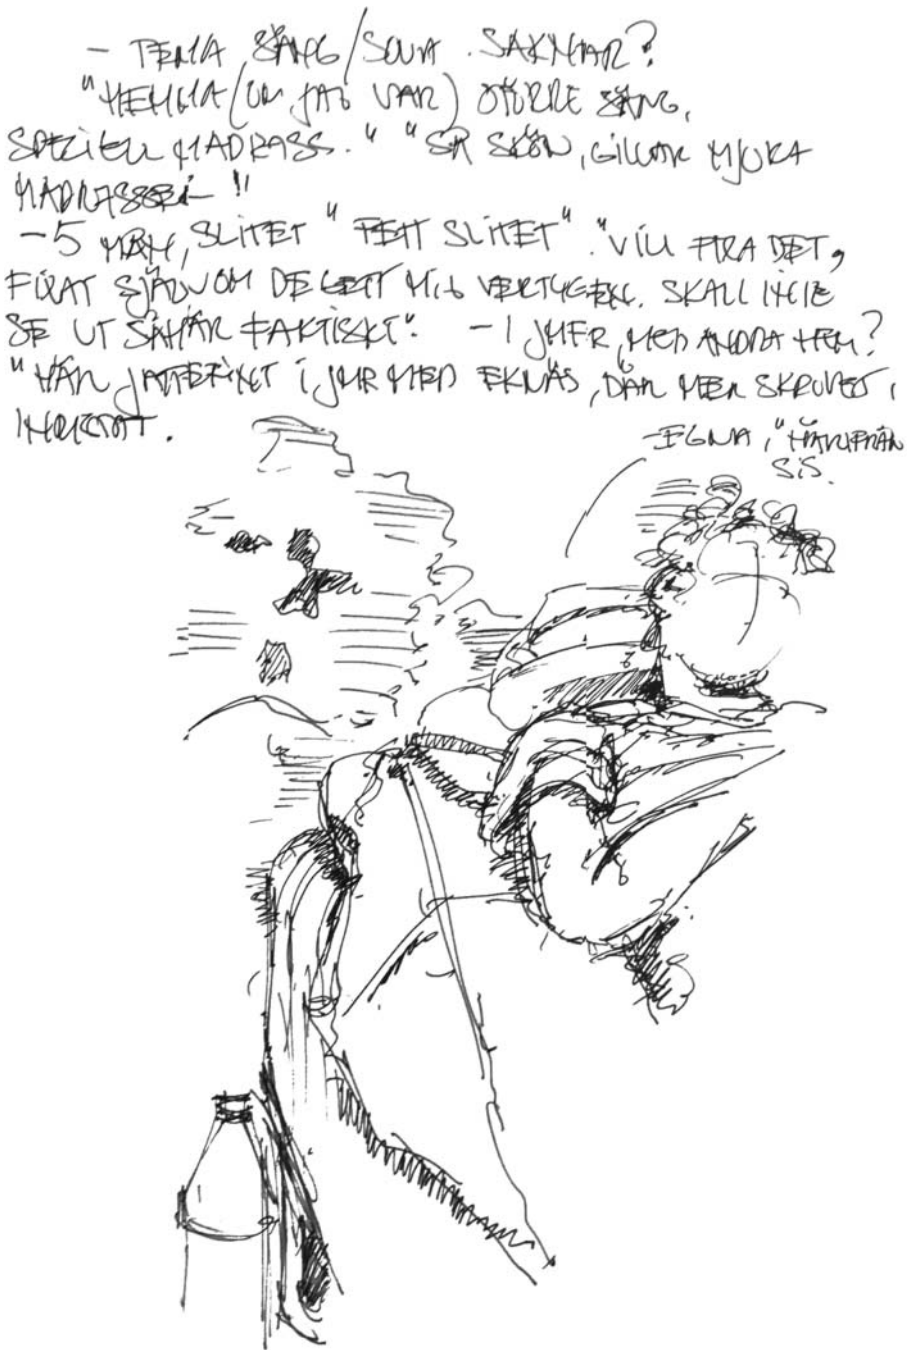 - TEMA SÄNG/SOVA. SAKNAR?
"HEMMA (OM JAG VAR) STÖRRE SÄNG,
SPECIELL MADRASS." "SÅ SKÖN, GILLAR MJUKA
MADRASSER!"
- 5 MÅN, SLITET "FETT SLITET". "VILL FIXA DET,
FIXAT SJÄLV OM DE GETT MIG VERKTYGEN. SKALL INTE
SE UT SÅHÄR FAKTISKT". - I JMFR MED ANDRA HEM?
"HÄR JÄTTEFINT I JMR MED EKNÄS, DÄR MER SKRUVAT,
INRISTAT.
- EGNA, "HÄRIFRÅN
SIS.